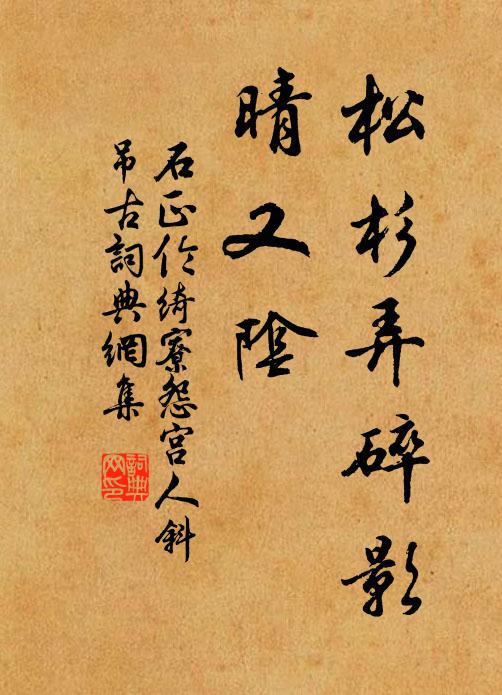 松杉弄碎影
晴又陰
石正伦綺寮怨宮人斜
吊古詞典網集
詞典
网印